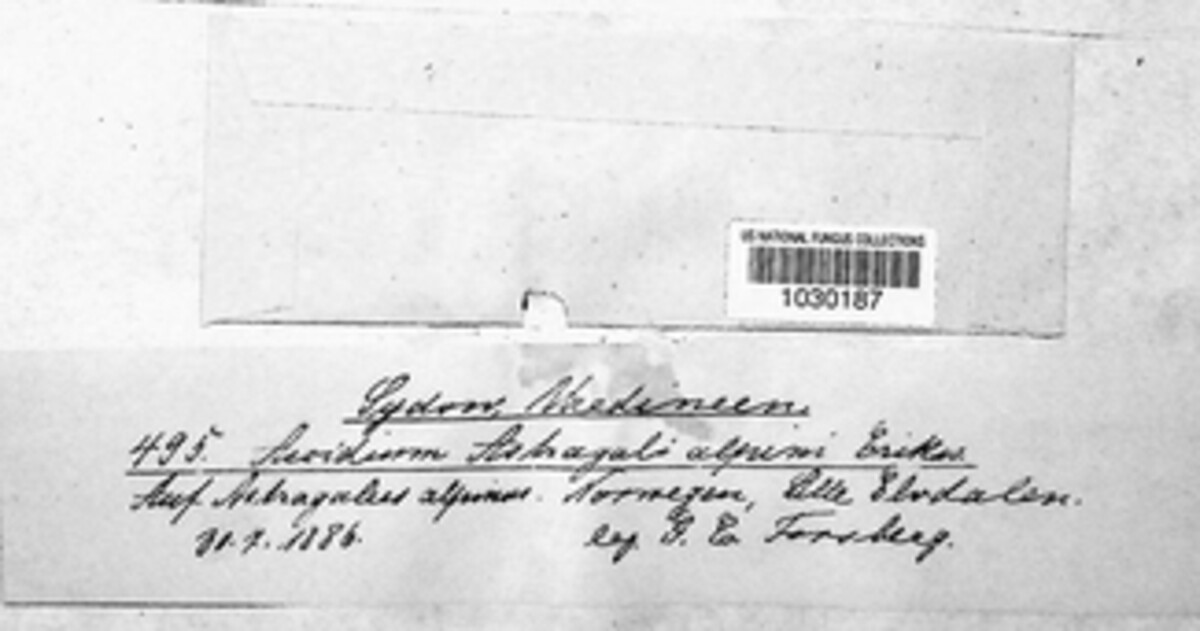 US NATIONAL FUNGUS COLLECTIONS
1030187
Sydow, Uredineen.
495. Aecidium Astragali alpini Erikss.
Auf Astragalus alpinus. Norwegen, Lille Elvdalen.
7. 1886. leg. C. Forsberg.